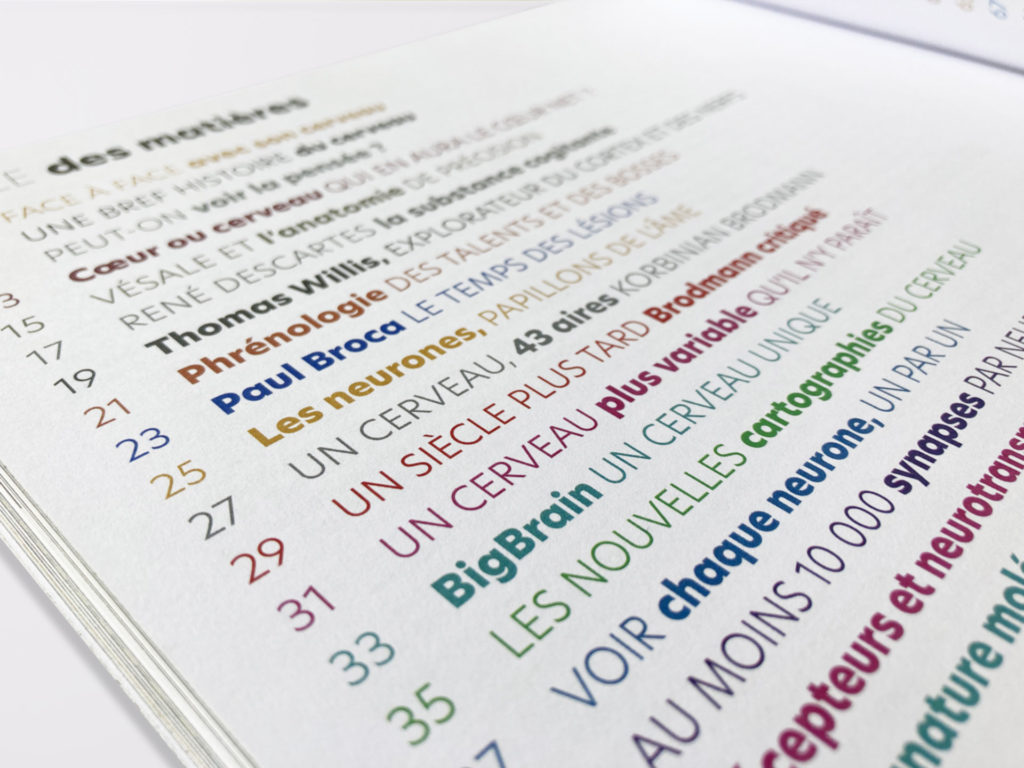 des matières
FACE À FACE avec son cerveau
UNE BREF HISTOIRE du cerveau
PEUT-ON voir la pensée ?
Cœur ou cerveau QUI EN AURA LE CŒUR NET ?
13 VÉSALE ET l'anatomie DE PRÉCISION
15 RENÉ DESCARTES la substance cogitante
17 Thomas Willis, EXPLORATEUR DU CORTEX ET DES NERFS
19 Phrénologie DES TALENTS ET DES BOSSES
21 Paul Broca LE TEMPS DES LÉSIONS
23 Les neurones, PAPILLONS DE L'ÂME
25 UN CERVEAU, 43 aires KORBINIAN BRODMANN
27 UN SIÈCLE PLUS TARD Brodmann critiqué
29 UN CERVEAU plus variable QU'IL N'Y PARAÎT
31 BigBrain UN CERVEAU UNIQUE
33 LES NOUVELLES cartographies DU CERVEAU
35 VOIR chaque neurone, UN PAR UN
37 AU MOINS 10 000 synapses PAR
et
67